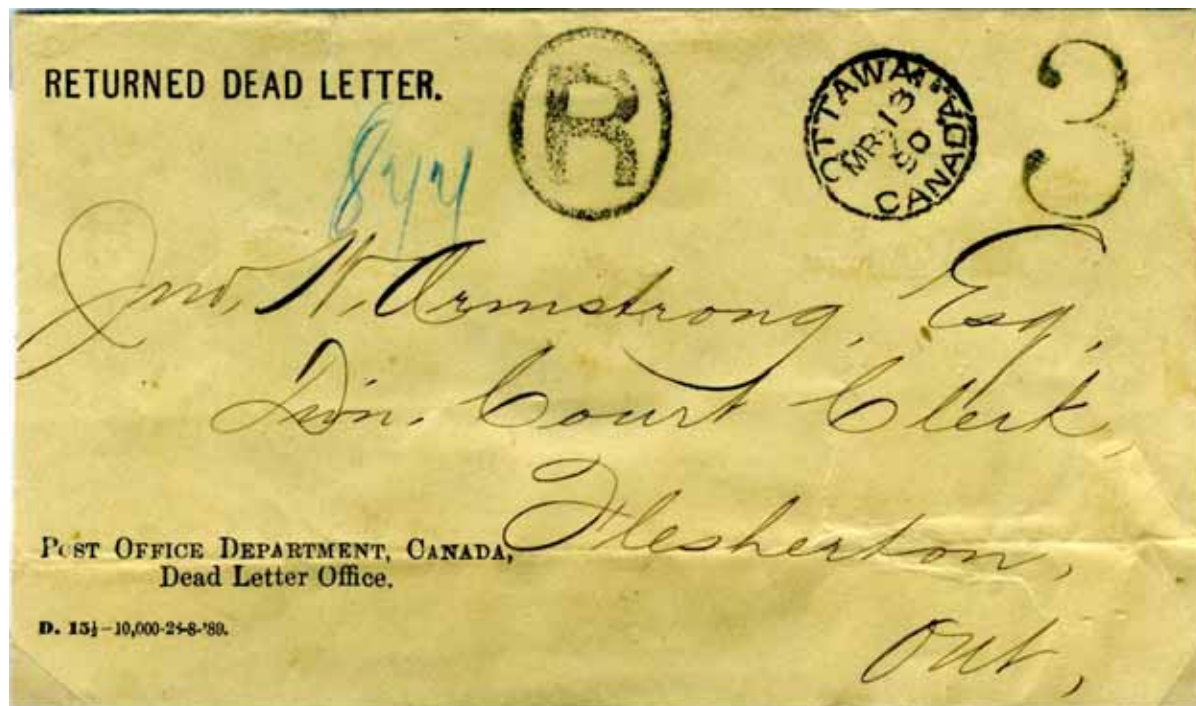 RETURNED DEAD LETTER.
R
OTTAWA
MR 13
90
CANADA
3
844
Jno. W. Armstrong, Esq.
Divn. Court Clerk,
Flesherton,
Ont,
POST OFFICE DEPARTMENT, CANADA,
Dead Letter Office.
D. 15½–10,000-28-8-'89.